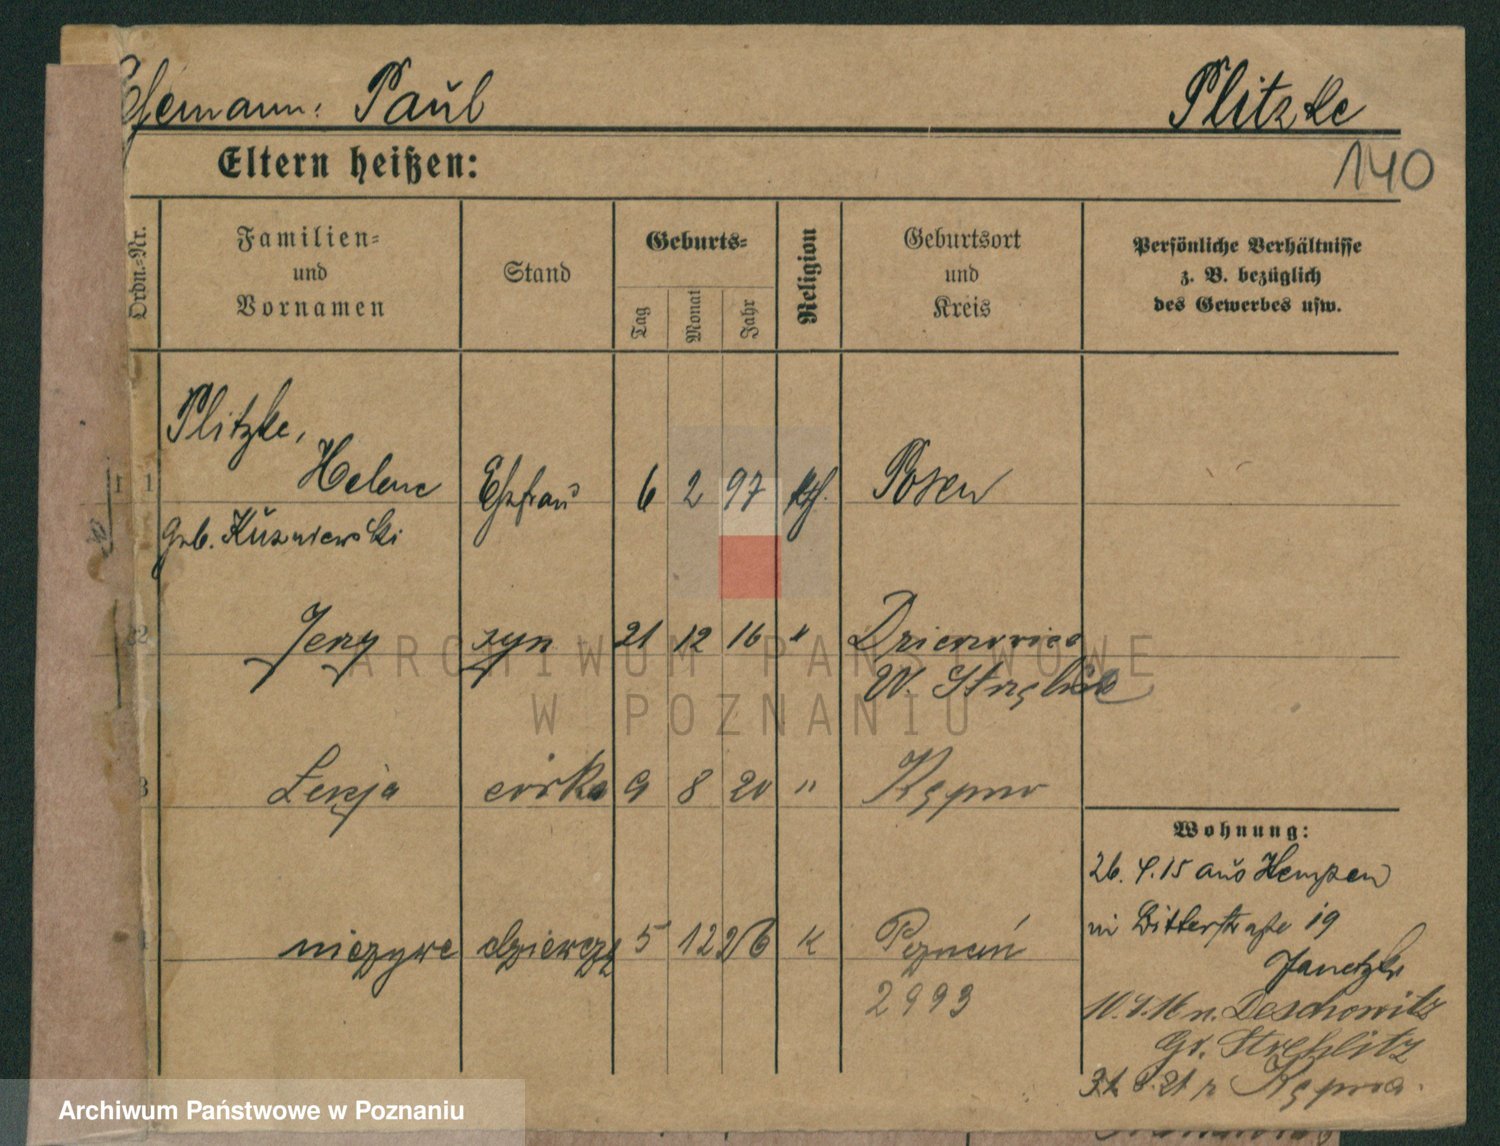 Ehemann: Paul Plitzke
140
Eltern heißen:
Ordn.-Nr.
Familien-
und
Vornamen
Stand
Geburts-
Tag
Monat
Jahr
Religion
Geburtsort
und
Kreis
Persönliche Verhältnisse
z. B. bezüglich
des Gewerbes usw.
Plitzke,
1 Helene Ehefrau 6 2 97 kth. Posen
geb. Kuzniewski
2 Jerzy syn 21 12 16 " Dzieszowice
W. Strzelice
3 córka 9 8 20 " Kępno
nieżywe dziewczę 5 12 26 k Poznań
2993
Wohnung:
26. 4. 15 aus Kempen
in Bitterstraße 19
Janetzki
10. 4. 16 n. Deschowitz
Gr. Strehlitz
21 Kępna
ARCHIWUM PAŃSTWOWE
W POZNANIU
Archiwum Państwowe w Poznaniu